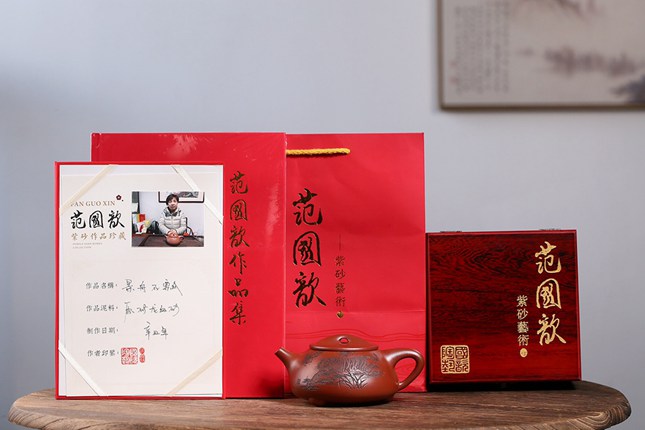 FAN GUO XIN
范國歆
紫砂作品珍藏
作品名稱：景舟石瓢
作品泥料：
制作日期：辛丑年
作者印鑒：
范國歆作品集
范國歆
紫砂藝術
范國歆
紫砂藝術
國歆陶藝